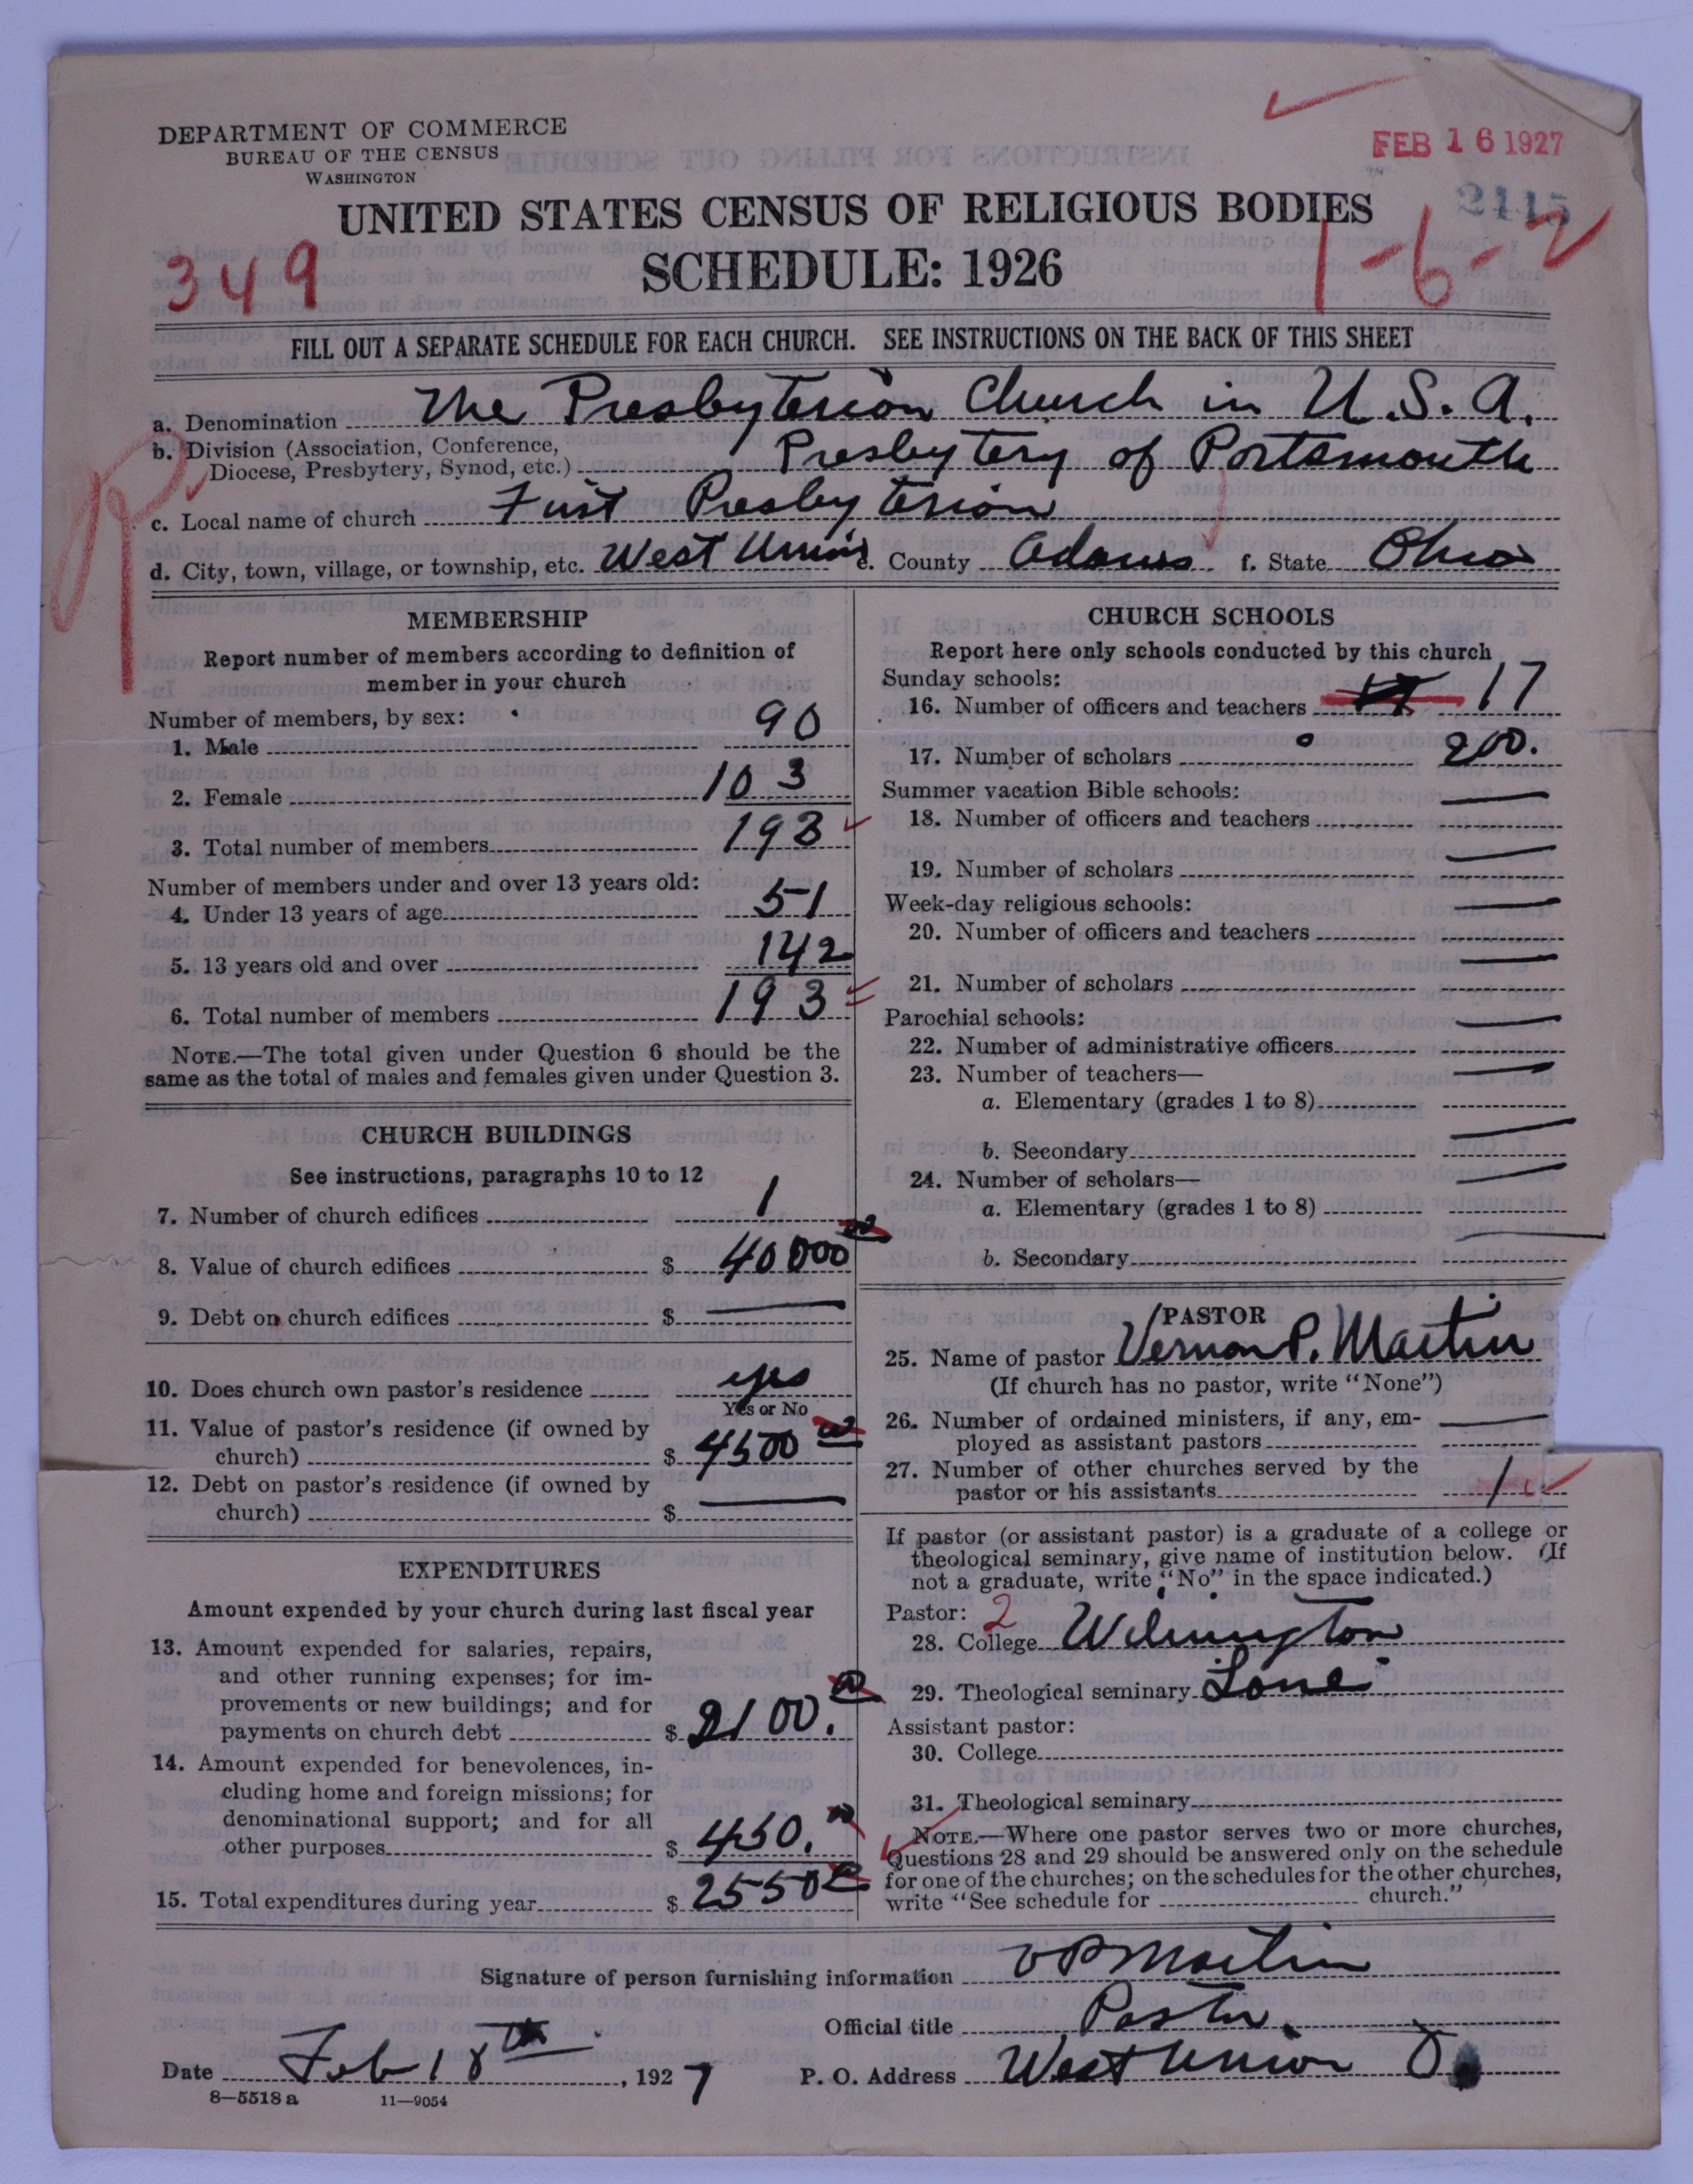 DEPARTMENT OF COMMERCE
BUREAU OF THE CENSUS
WASHINGTON
FEB 16 1927
2415
UNITED STATES CENSUS OF RELIGIOUS BODIES
SCHEDULE: 1926
349
1-6-2
FILL OUT A SEPARATE SCHEDULE FOR EACH CHURCH. SEE INSTRUCTIONS ON THE BACK OF THIS SHEET
a. Denomination The Presbyterian Church in U.S.A.
b. Division (Association, Conference,
Diocese, Presbytery, Synod, etc.) Presbytery of Portsmouth
c. Local name of church First Presbyterian
d. City, town, village, or township, etc. West Union e. County Adams f. State Ohio
MEMBERSHIP
Report number of members according to definition of
member in your church
Number of members, by sex:
1. Male 90
2. Female 103
3. Total number of members 193
Number of members under and over 13 years old:
4. Under 13 years of age 51
5. 13 years old and over 142
6. Total number of members 193
NOTE.—The total given under Question 6 should be the
same as the total of males and females given under Question 3.
CHURCH BUILDINGS
See instructions, paragraphs 10 to 12
7. Number of church edifices 1
8. Value of church edifices $ 40000 00
9. Debt on church edifices $ —
10. Does church own pastor's residence yes
Yes or No
11. Value of pastor's residence (if owned by
church) $ 4500 00
12. Debt on pastor's residence (if owned by
church) $ —
EXPENDITURES
Amount expended by your church during last fiscal year
13. Amount expended for salaries, repairs,
and other running expenses; for im-
provements or new buildings; and for
payments on church debt $ 2100. 00
14. Amount expended for benevolences, in-
cluding home and foreign missions; for
denominational support; and for all
other purposes $ 450. 00
15. Total expenditures during year $ 2550 00
CHURCH SCHOOLS
Report here only schools conducted by this church
Sunday schools:
16. Number of officers and teachers 17 17
17. Number of scholars 200.
Summer vacation Bible schools:
18. Number of officers and teachers —
19. Number of scholars —
Week-day religious schools:
20. Number of officers and teachers —
21. Number of scholars —
Parochial schools:
22. Number of administrative officers —
23. Number of teachers—
a. Elementary (grades 1 to 8) —
b. Secondary —
24. Number of scholars—
a. Elementary (grades 1 to 8) —
b. Secondary —
PASTOR
25. Name of pastor Vernon P. Martin
(If church has no pastor, write "None")
26. Number of ordained ministers, if any, em-
ployed as assistant pastors —
27. Number of other churches served by the
pastor or his assistants 1
If pastor (or assistant pastor) is a graduate of a college or
theological seminary, give name of institution below. (If
not a graduate, write "No" in the space indicated.)
Pastor: 2
28. College Wilmington
29. Theological seminary Lane
Assistant pastor:
30. College
31. Theological seminary
NOTE.—Where one pastor serves two or more churches,
Questions 28 and 29 should be answered only on the schedule
for one of the churches; on the schedules for the other churches,
write "See schedule for church."
Signature of person furnishing information V P Martin
Official title Pastor.
Date Feb 18th, 1927 P. O. Address West Union O.
8—5518a 11—9054